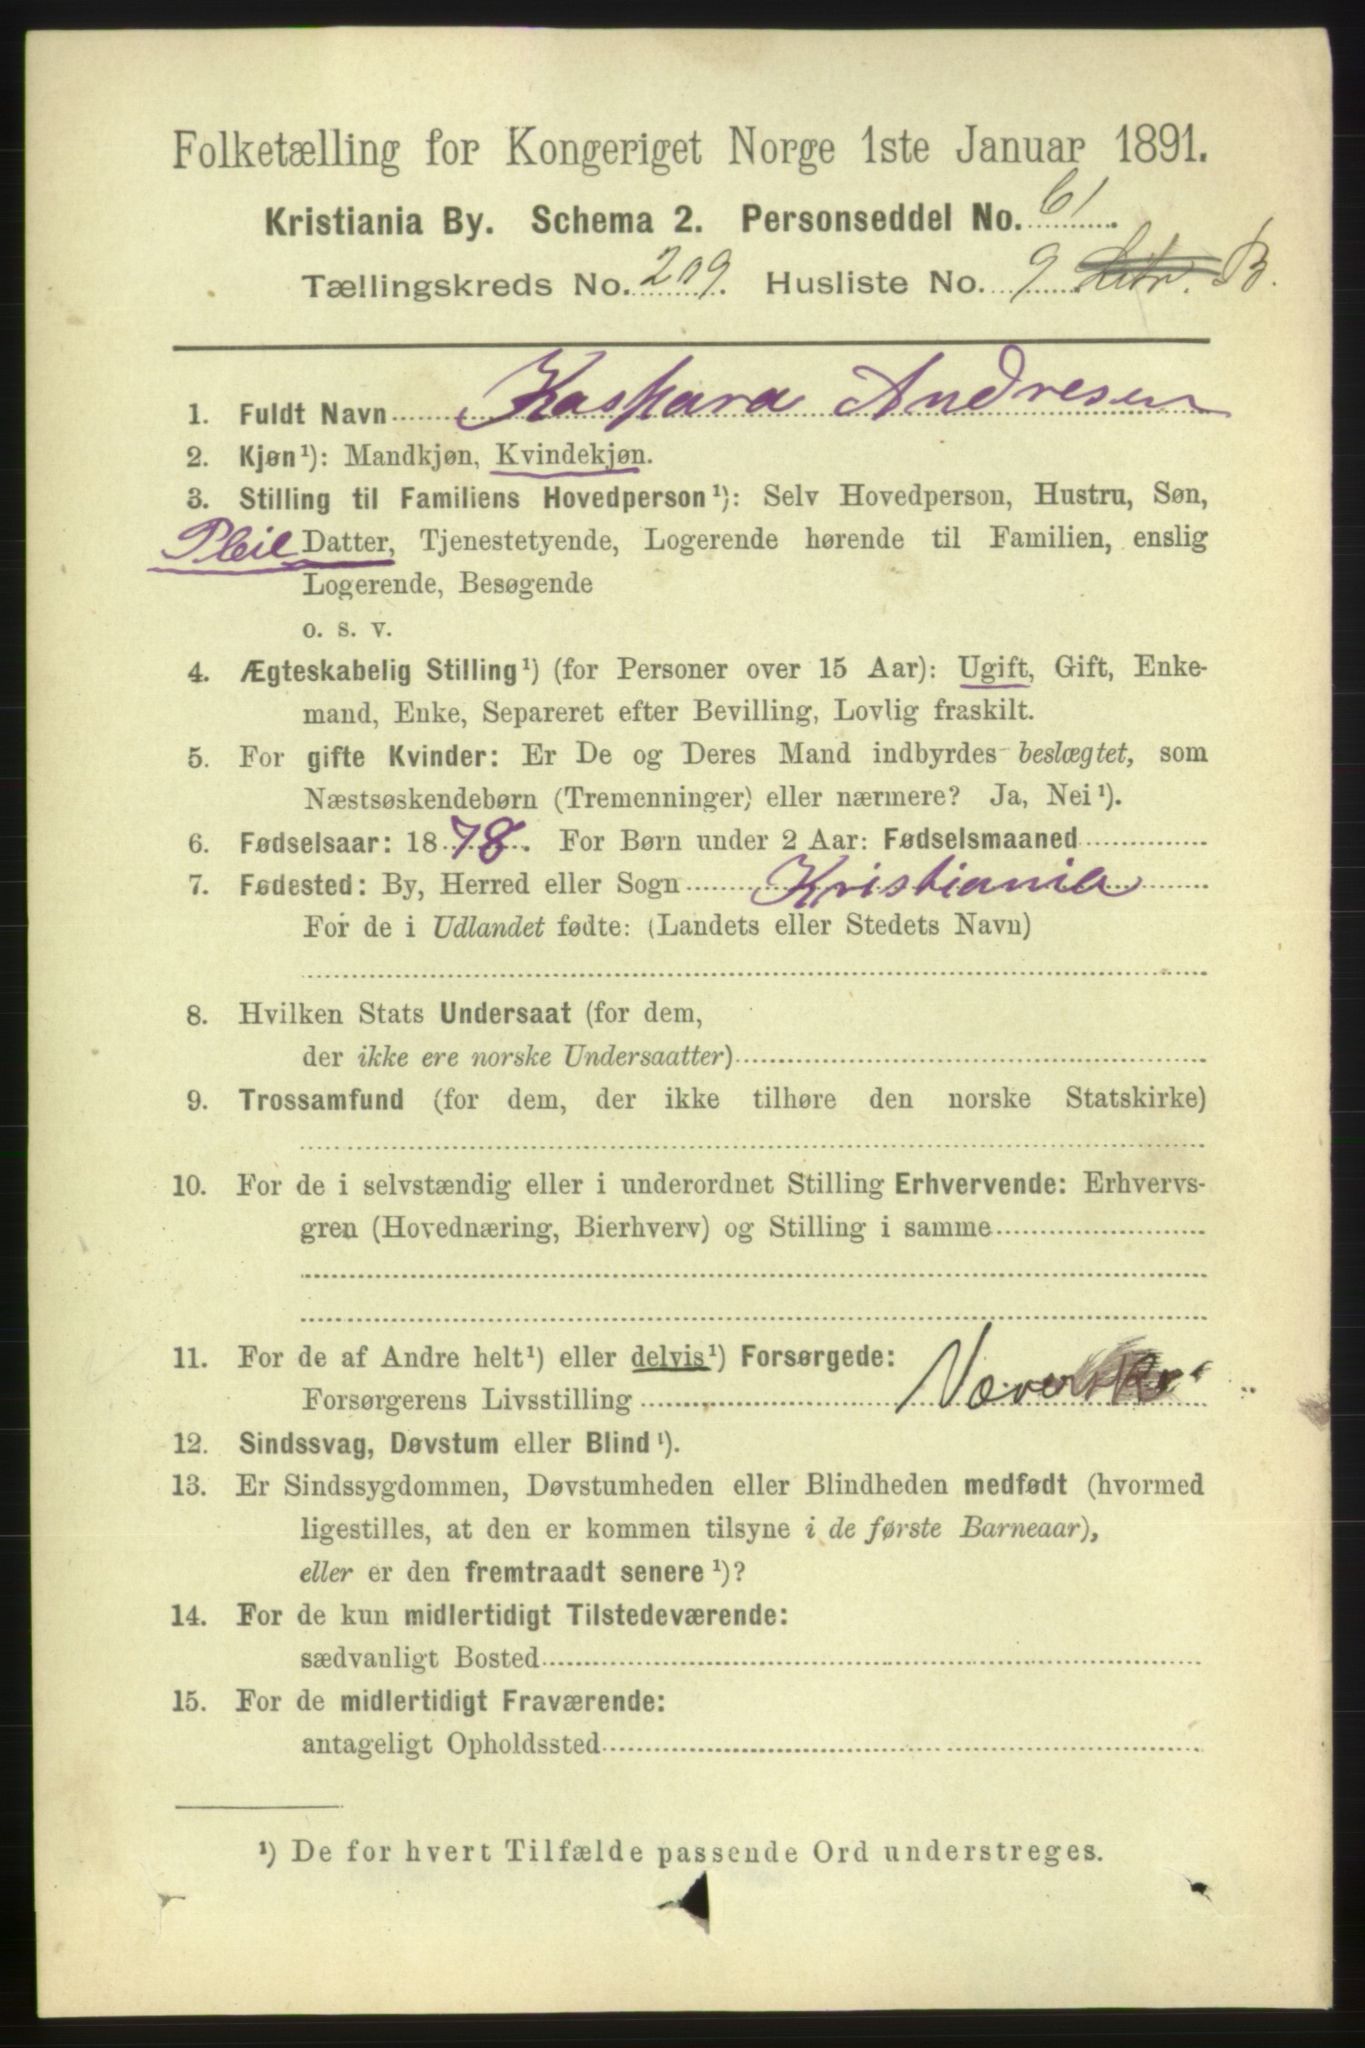 Folketælling for Kongeriget Norge 1ste Januar 1891.
Kristiania By. Schema 2. Personseddel No. 61.
Tællingskreds No. 209. Husliste No. 9 Litr. B.
1. Fuldt Navn Kaspara Andresen
2. Kjøn¹): Mandkjøn, Kvindekjøn.
3. Stilling til Familiens Hovedperson¹): Selv Hovedperson, Hustru, Søn,
Pleie Datter, Tjenestetyende, Logerende hørende til Familien, enslig
Logerende, Besøgende
o. s. v.
4. Ægteskabelig Stilling¹) (for Personer over 15 Aar): Ugift, Gift, Enke-
mand, Enke, Separeret efter Bevilling, Lovlig fraskilt.
5. For gifte Kvinder: Er De og Deres Mand indbyrdes beslægtet, som
Næstsøskendebørn (Tremenninger) eller nærmere? Ja, Nei¹).
6. Fødselsaar: 1878. For Børn under 2 Aar: Fødselsmaaned
7. Fødested: By, Herred eller Sogn Kristiania
For de i Udlandet fødte: (Landets eller Stedets Navn)
8. Hvilken Stats Undersaat (for dem,
der ikke ere norske Undersaatter)
9. Trossamfund (for dem, der ikke tilhøre den norske Statskirke)
10. For de i selvstændig eller i underordnet Stilling Erhvervende: Erhvervs-
gren (Hovednæring, Bierhverv) og Stilling i samme
11. For de af Andre helt¹) eller delvis¹) Forsørgede:
Forsørgerens Livsstilling
12. Sindssvag, Døvstum eller Blind¹).
13. Er Sindssygdommen, Døvstumheden eller Blindheden medfødt (hvormed
ligestilles, at den er kommen tilsyne i de første Barneaar),
eller er den fremtraadt senere¹)?
14. For de kun midlertidigt Tilstedeværende:
sædvanligt Bosted
15. For de midlertidigt Fraværende:
antageligt Opholdssted
¹) De for hvert Tilfælde passende Ord understreges.